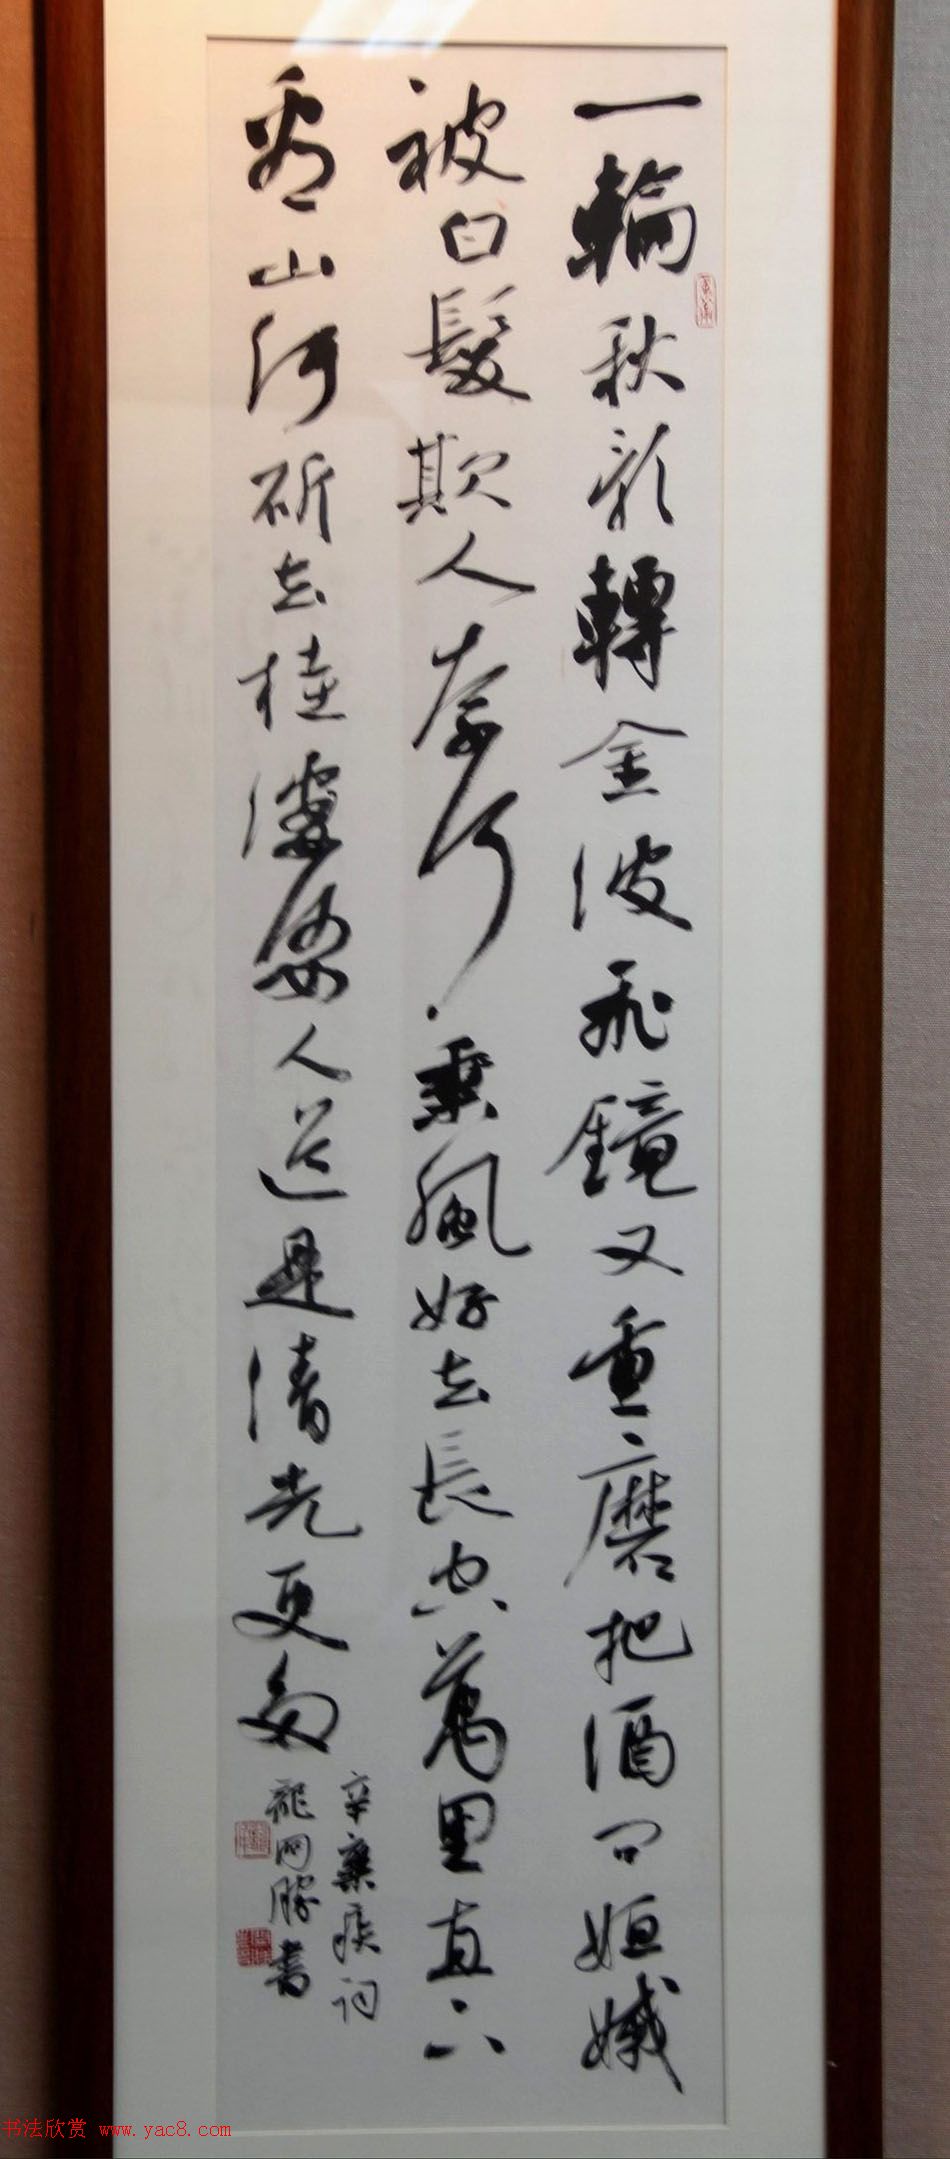 一輪秋影轉金波飛鏡又重磨把酒問姮娥
被白髮欺人奈何乘風好去長空萬里直下
看山河斫去桂婆娑人道是清光更多
辛棄疾詞
龍開勝書
书法欣赏 www.yac8.com